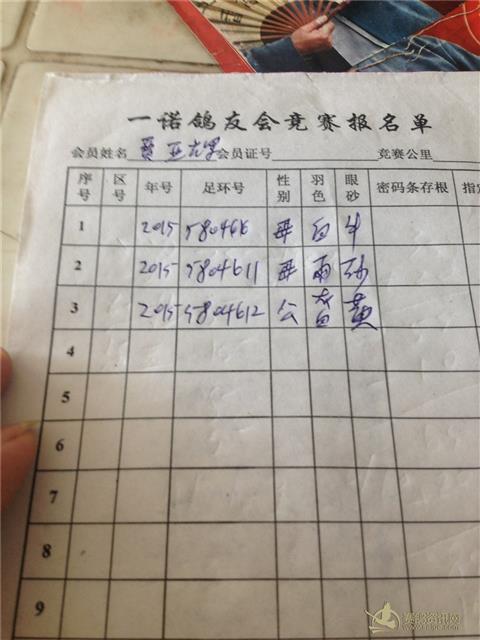 一诺鸽友会竞赛报名单
会员姓名 会员证号 竞赛公里
序号 区号 年号 足环号 性别 羽色 眼砂 密码条存根 指定
1 2015 白 牛
2 2015 5804611 雨 砂
3 2015 5804612 公 黄
4
5
6
7
8
9
赛鸽资讯网